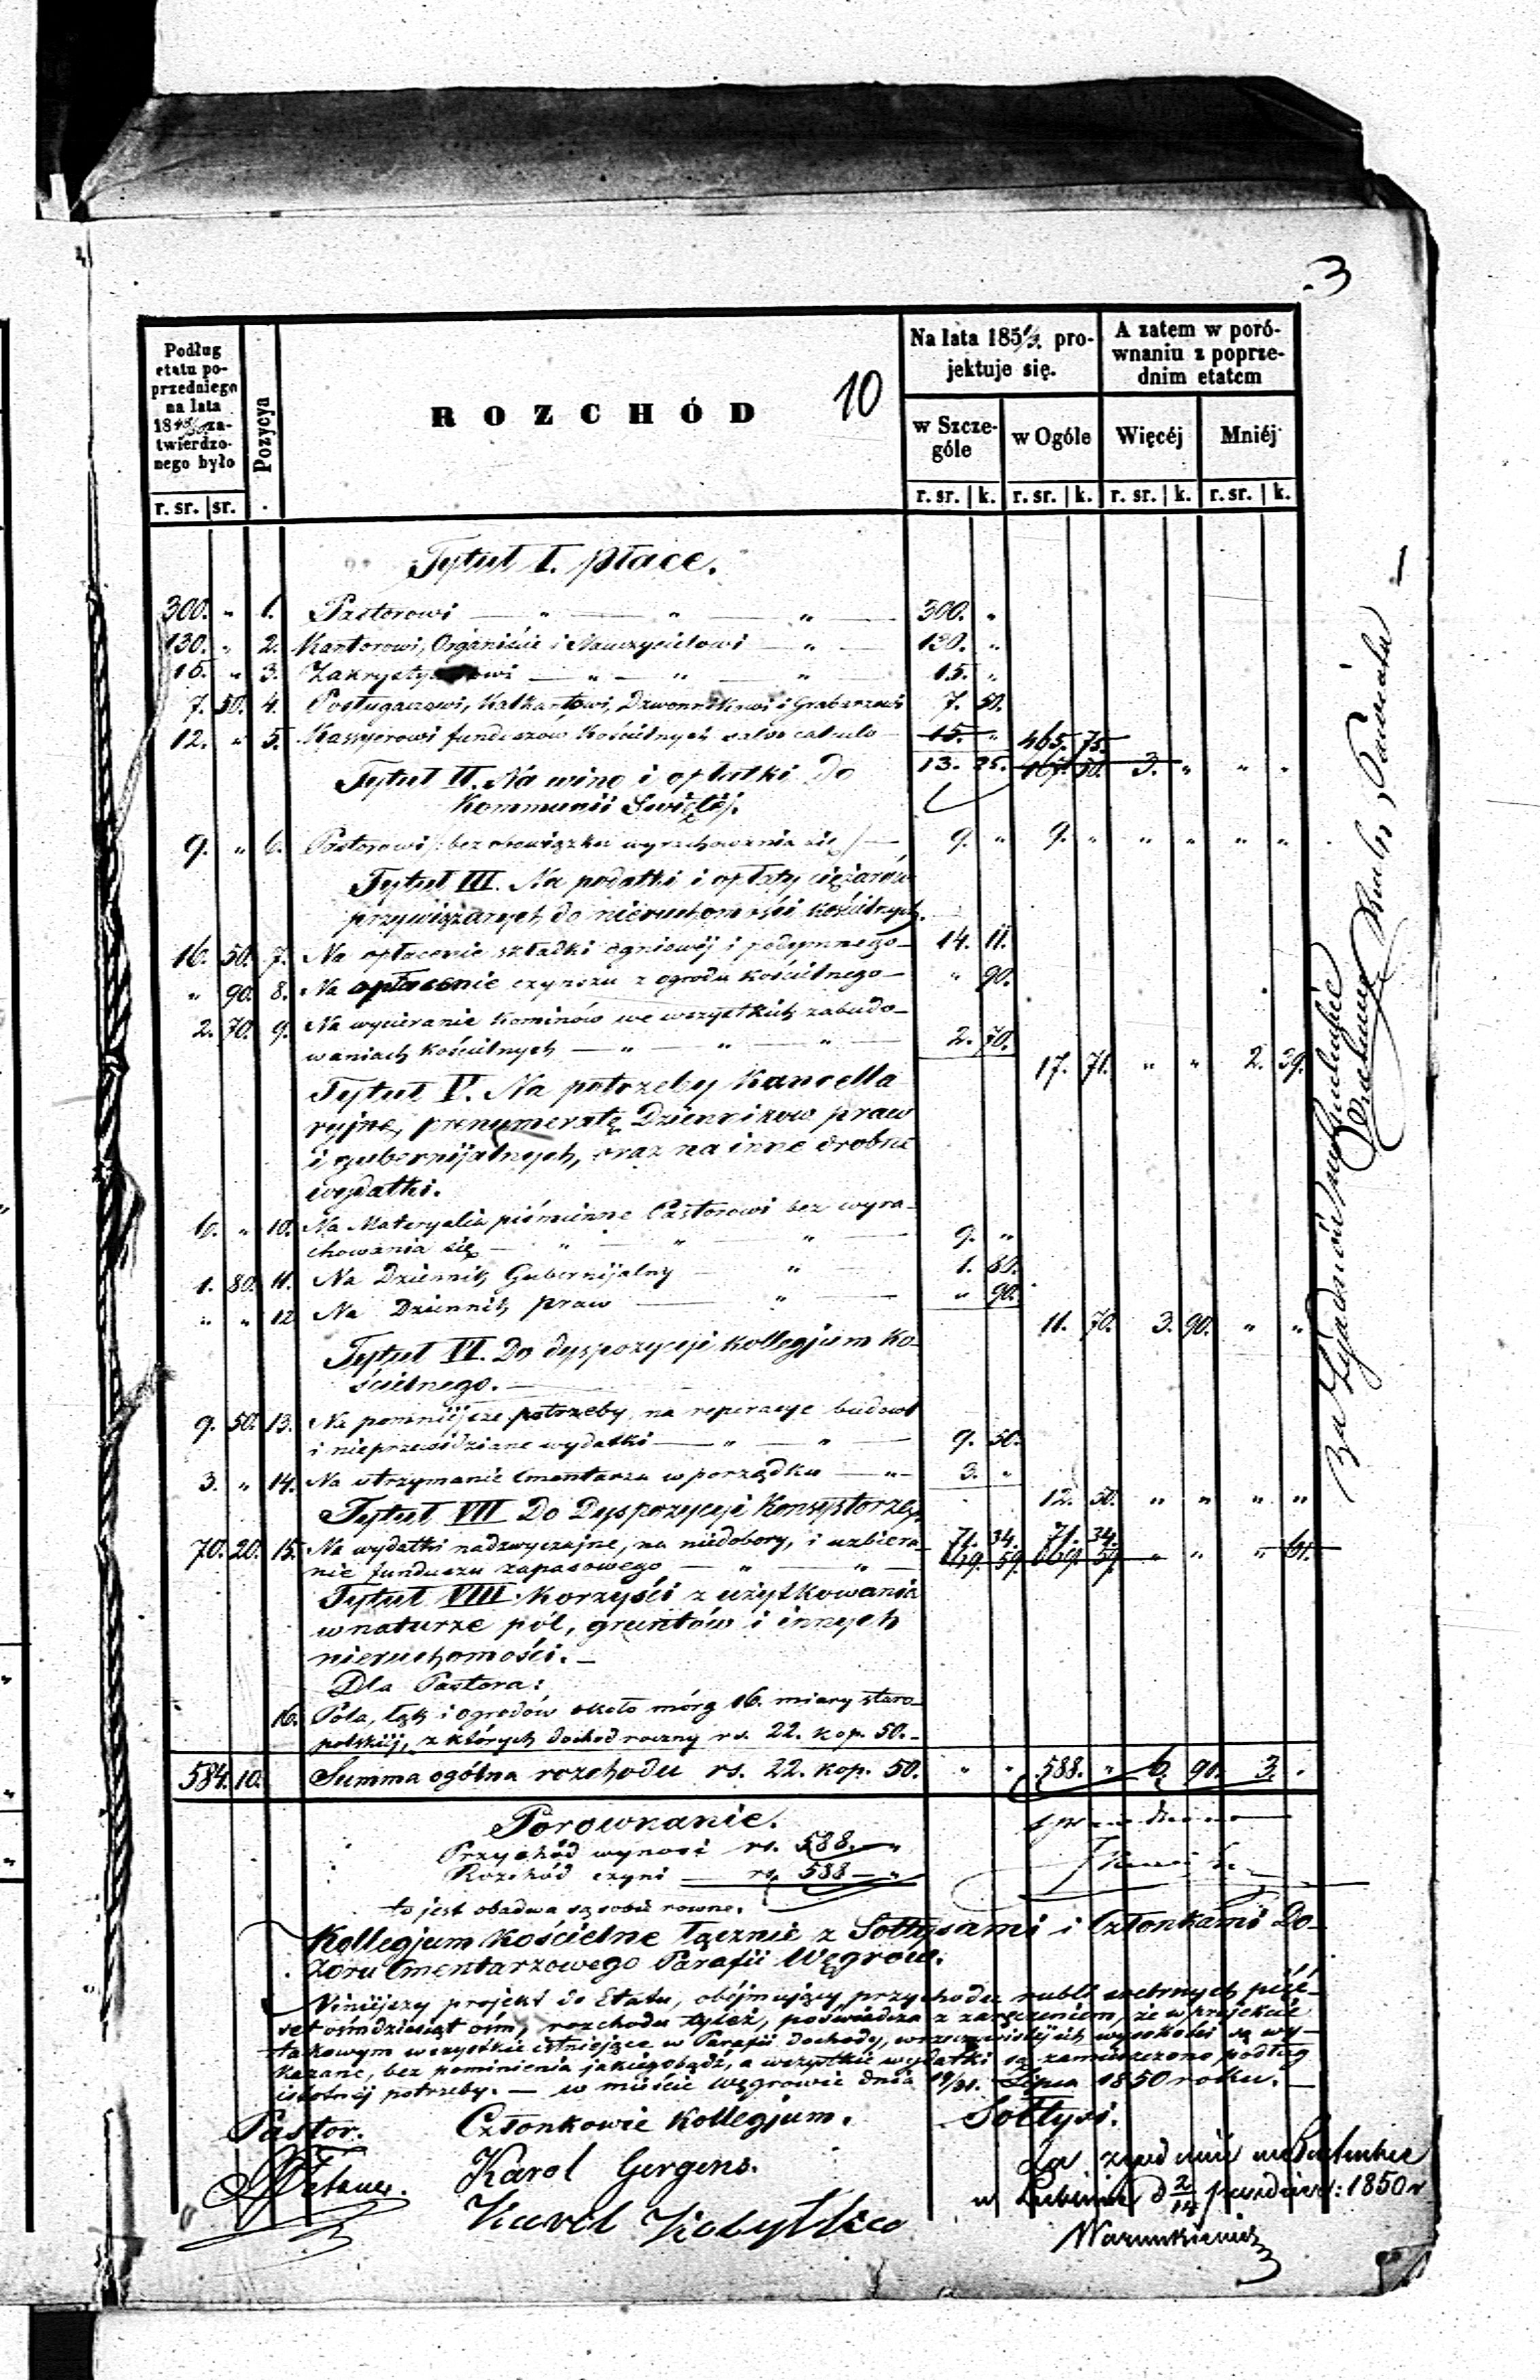 3
10
Podług
etatu po-
przedniego
na lata
18 za-
twierdzo-
nego było
r. sr. sr.
Pozycya
ROZCHÓD
Na lata 1851/3 pro-
jektuje się.
w Szcze-
góle
w Ogóle
r. sr. k. r. sr. k.
A zatem w poró-
wnaniu z poprze-
dnim etatem
Więcéj Mniéj
r. sr. k. r. sr. k.
Tytuł I. płace.
300. " 1. Pastorowi — " — " — " — 300. "
130. " 2. Kantorowi, Organiście i Nauczycielowi — " — 130. "
15. " 3. — " — " — " 15. "
7. 50. 4. Posługaczowi, Kalkantowi, Dzwonnikowi i Grabarzowi 7. 50.
12. " 5. Kassyerowi funduszów Kościelnych salvo calculo — 15. " 465. 75.
13. 25. 467. 50. 3. " " "
Tytuł II. Na wino i opłatki do
Kommunii Swiętéj.
9. " 6. Pastorowi /: bez obowiązku wyrachowania się :/ — 9. " 9. " " " " "
Tytuł III. Na podatki i opłaty ciężarów
przywiązanych do nieruchomości kościelnych.
16. 50. 7. Na opłacenie składki ogniowéj i podymnego — 14. 11.
" 90. 8. Na opłacenie czynszu z ogrodu kościelnego — " 90.
2. 70. 9. Na wycieranie Kominów we wszystkich zabudo-
waniach kościelnych — " — " — " — 2. 70.
17. 71. " " 2. 39.
Tytuł V. Na potrzeby kancella
ryjne, prenumeratę Dzienników praw
i gubernijalnych, oraz na inne drobne
wydatki.
6. " 10. Na Materyalia piśmienne Pastorowi bez wyra-
chowania się — " — " — " — 9. "
1. 80. 11. Na Dziennik Gubernijalny — " — 1. 80.
" " 12. Na Dziennik praw — " — " 90.
11. 70. 3. 90. " "
Tytuł VI. Do dyspozycyi kollegjum Ko-
ścielnego. —
9. 50. 13. Na pomniéjsze potrzeby, na reperacye budowl
i nieprzewidziane wydatki — " — " — 9. 50.
3. " 14. Na utrzymanie Cmentarza w porządku — " — 3. "
12. 50. " " " "
Tytuł VII Do Dyspozycyi Konsystorza.
70. 20. 15. Na wydatki nadzwyczajne, na niedobory, i uzbiera- 71. 34. 71. 34.
nie funduszu zapasowego — " — " — 69. 59. 69. 59. " " " 61.
Tytuł VIII. Korzyści z użytkowania
w naturze pól, gruntów i innych
nieruchomości. —
Dla Pastora:
16. Pola, łąk i ogrodów około mórg 16. miary staro-
polskiéj, z których dochod roczny rs. 22. kop. 50. —
584. 10. Summa ogólna rozchodu rs. 22. kop. 50. " " 588. " 6. 90. 3. "
Porownanie.
Przychód wynosi rs. 588. — "
Rozchód czyni — rs. 588 — "
to jest obadwa są sobie rowne.
Kollegjum Kościelne łącznie z Sołtysami i Członkami Do-
zoru Cmentarzowego Parafii Węgrów.
Niniéjszy projekt do Etatu, obéjmujący przychodu rubli srebrnych pięć-
set ośmdziesiąt ośm, rozchodu tyleż, poświadcza z zaręczeniem, że w projekcie
takowym wszystkie istniejące w Parafii dochody, w rzeczywistéj ich wysokości są wy-
kazane, bez pominienia jakiegobądź, a wszystkie wydatki są zamieszczone podług
istotnéj potrzeby. — w mieście Węgrowie dnia 19/31. Lipca 1850 roku. —
Pastor. Członkowie Kollegjum. Sołtysi.
Karol Gergens.
Za
w Lublinie d 2/14 październ: 1850 r
Za Zgodność